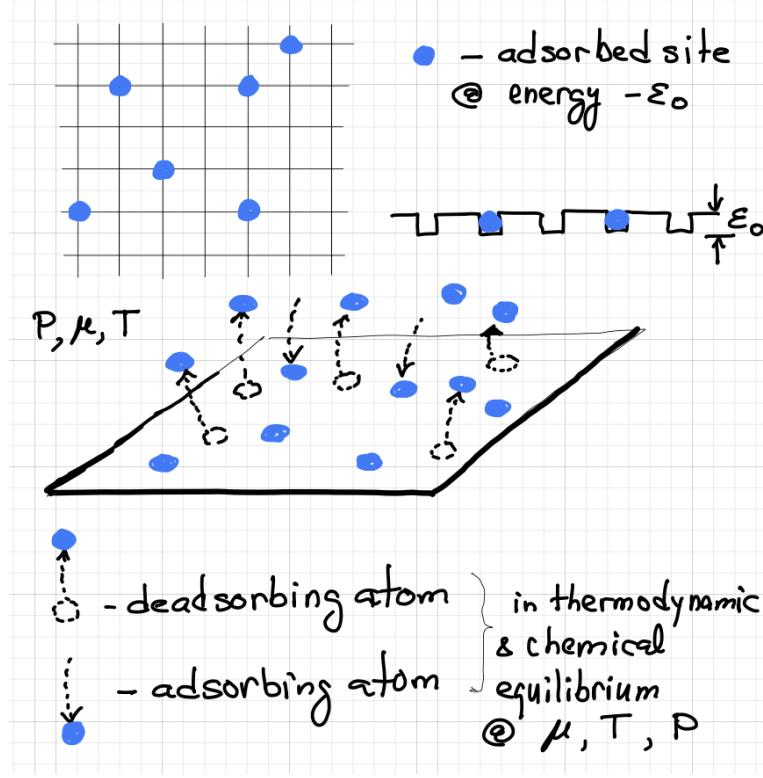 – adsorbed site
@ energy -ε₀
ε₀
P, μ, T
- deadsorbing atom
– adsorbing atom
in thermodynamic
& chemical
equilibrium
@ μ, T, P